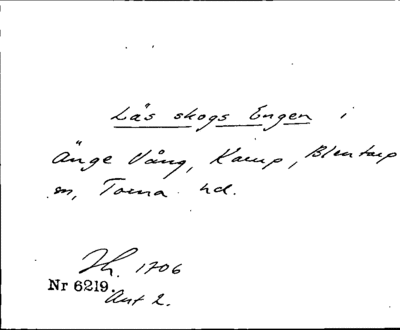 Läs skogs Engen i
Änge Vång, Kamp, Blentarp
sn, Torna hd.
Jh. 1706
Nr 6219.
Akt 2.